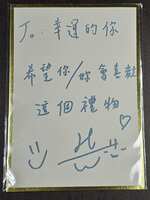 To: 幸運的你
希望你/妳會喜歡
這個禮物